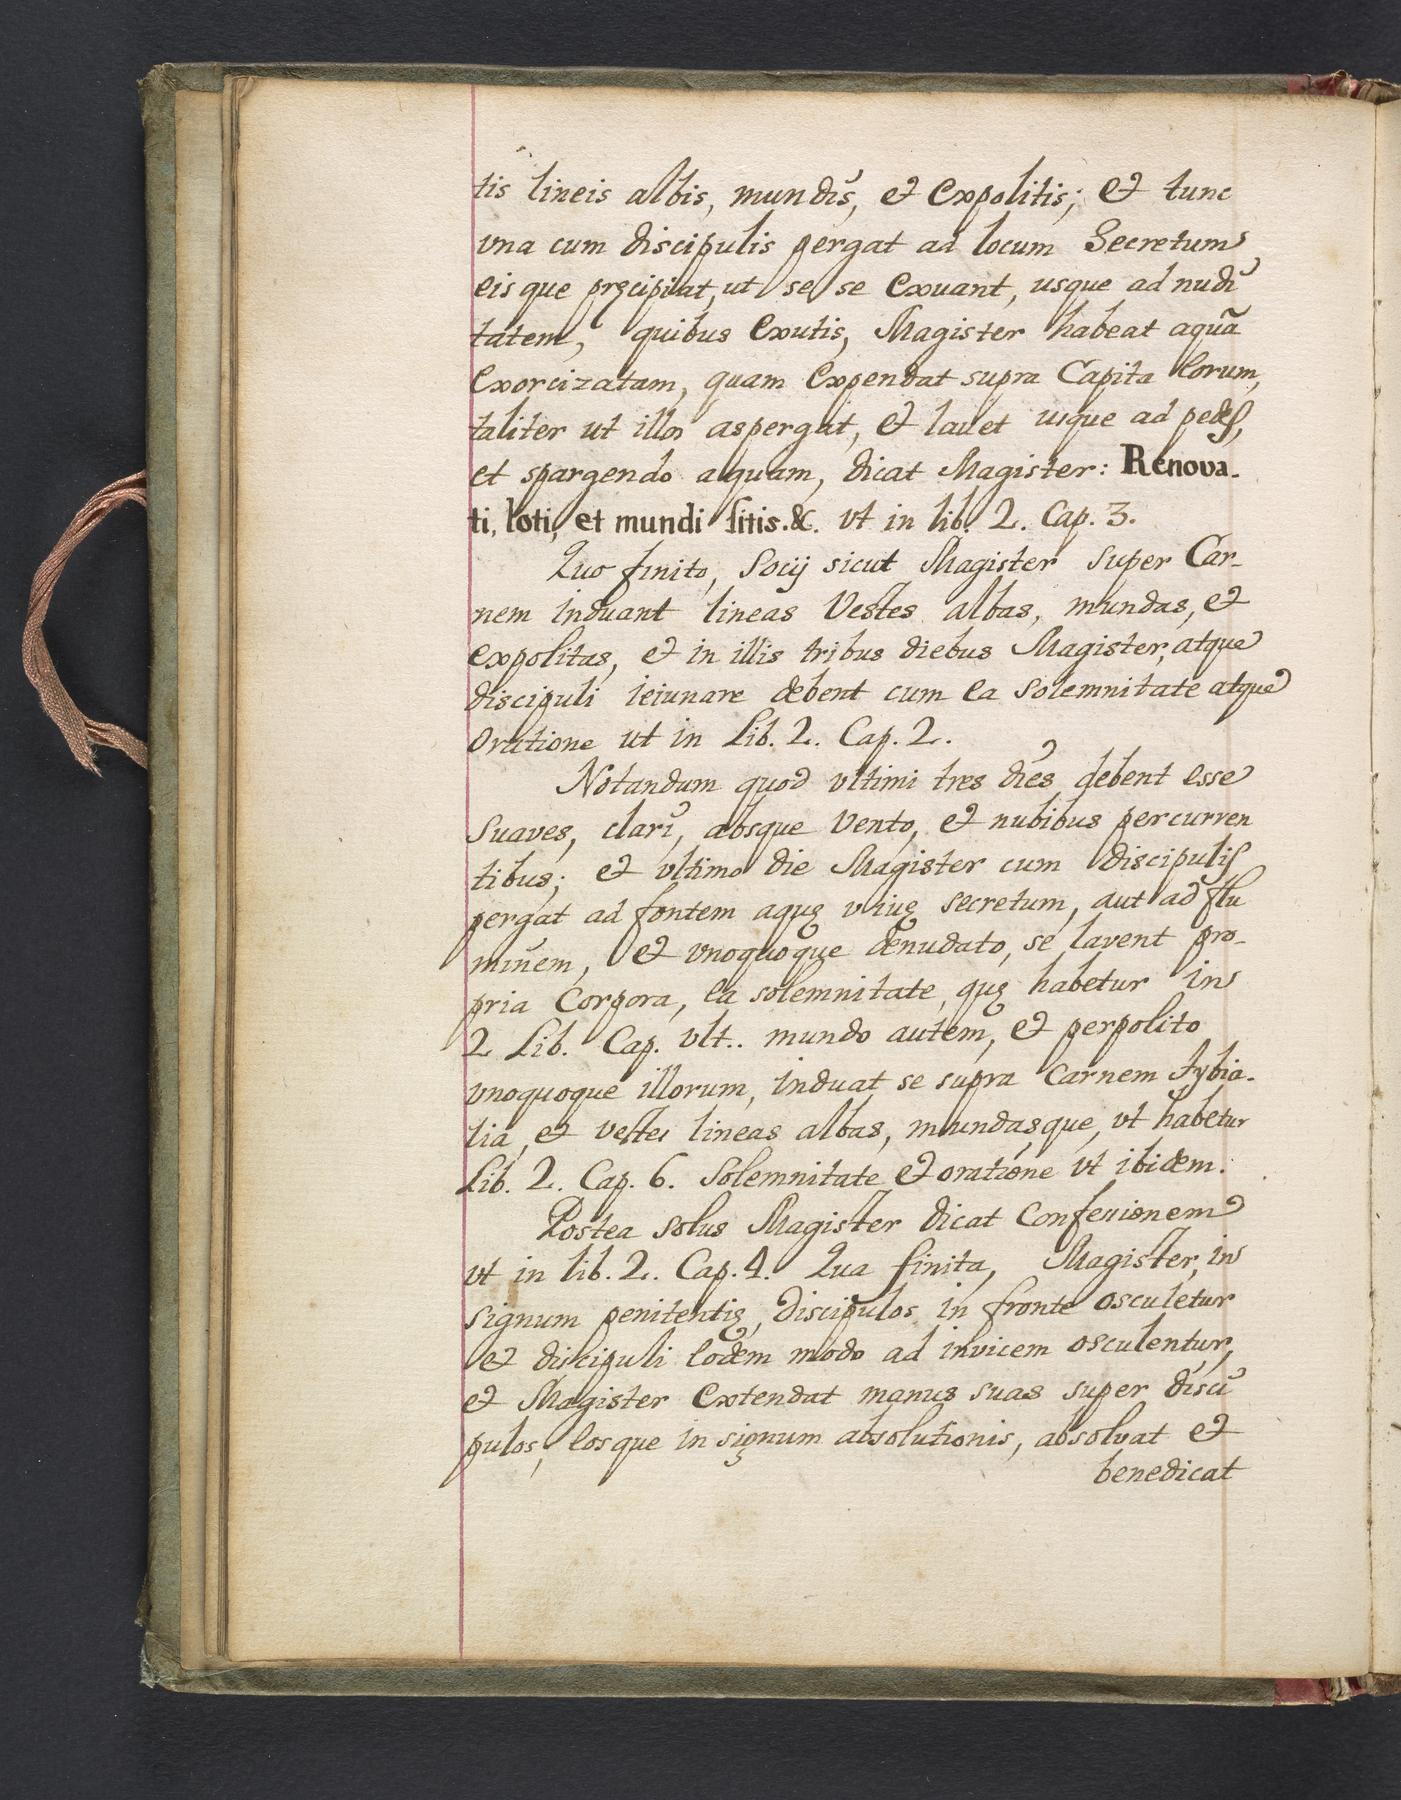 tis lineis albis, mundis, et expolitis; et tunc
vna cum discipulis pergat ad locum Secretum
eisque pręcipiat, ut se se exuant, usque ad nudi
tatem, quibus exutis, Magister habeat aquã
exorcizatam, quam expendat supra Capita eorum,
taliter ut illos aspergat, et lauet usque ad pedes,
et spargendo aquam, dicat Magister: Renova-
ti, loti, et mundi sitis.&. vt in lib. 2. Cap. 3.
Quo finito, Socij sicut Magister super Car-
nem induant lineas Vestes albas, mundas, et
expolitas, et in illis tribus diebus Magister, atque
discipuli ieiunare debent cum ea solemnitate atque
oratione ut in Lib. 2. Cap. 2.
Notandum quod vltimi tres dies debent esse
suaves, clari, absque vento, et nubibus percurren
tibus; et vltimo die Magister cum discipulis
pergat ad fontem aquę viuę secretum, aut ad flu
minem, et vnoquoque denudato, se lavent pro-
pria Corpora, ea solemnitate, quę habetur in
2 Lib. Cap. vlt.. mundo autem, et perpolito
vnoquoque illorum, induat se supra Carnem tybia-
lia, et vestes lineas albas, mundasque, vt habetur
Lib. 2. Cap. 6. Solemnitate et oratione vt ibidem.
Postea solus Magister dicat Confessionem
vt in lib. 2. Cap. 4. Qua finita, Magister, in
signum penitentię, discipulos in fronte osculetur
et discipuli eodem modo ad invicem osculentur,
et Magister extendat manus suas super disci
pulos, eosque in signum absolutionis, absolvat et
benedicat